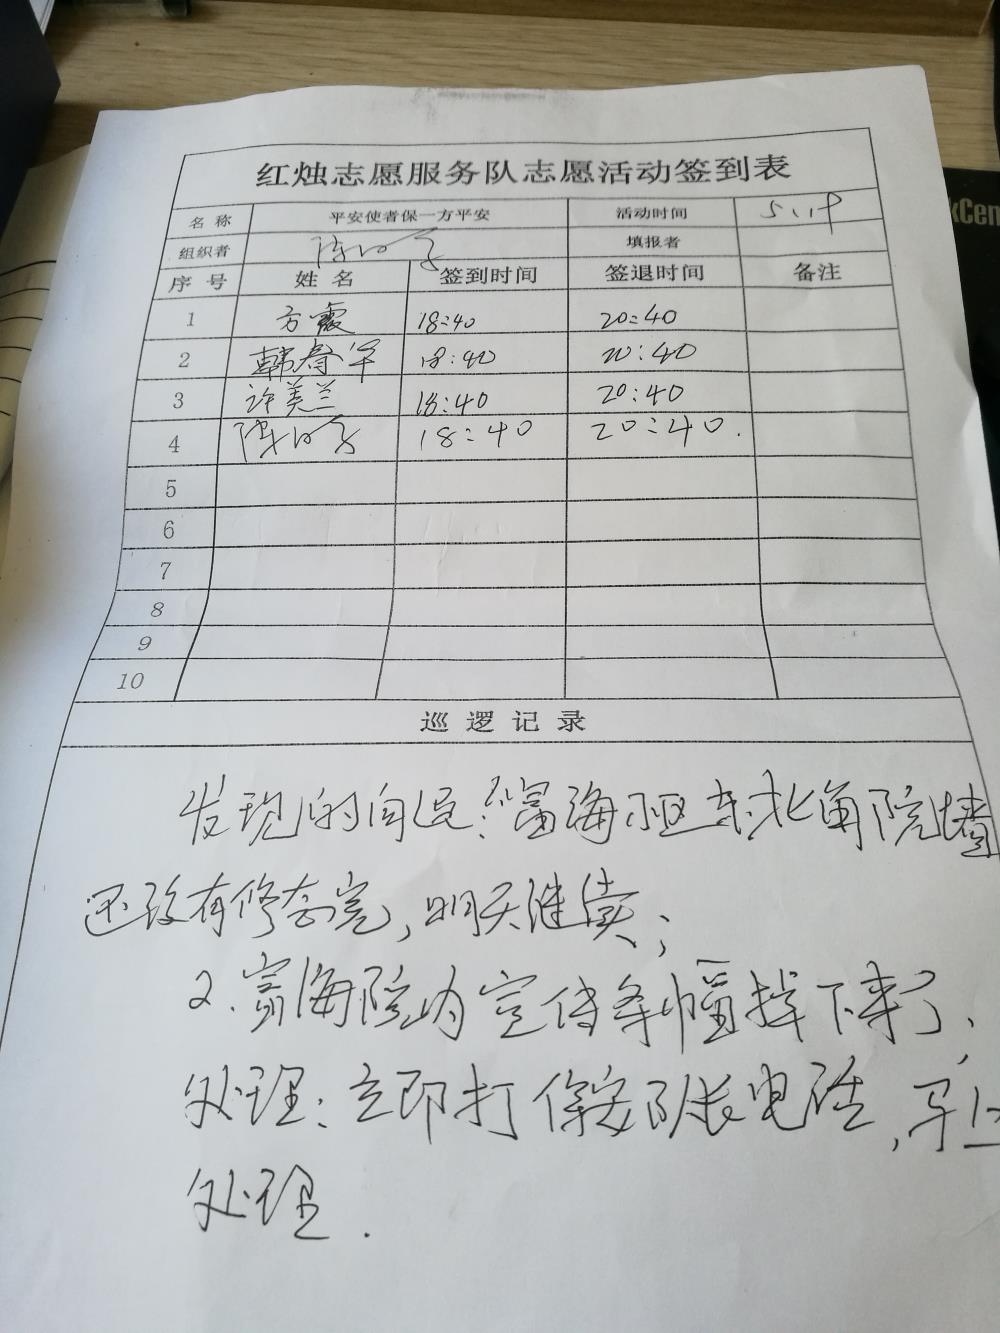 红烛志愿服务队志愿活动签到表
名 称 平安使者保一方平安 活动时间
组织者 填报者
序 号 姓 名 签到时间 签退时间 备注
1 方霞 18:40 20:40
2 韩春 18:40 20:40
3 许美兰 18:40 20:40
4 18:40 20:40.
5
6
7
8
9
10
巡 逻 记 录
发现的问题:富海小区东北角院墙
还没有修李完,明天继续;
2.富海院内宣传条幅掉下来了,
处理:立即打保安队长电话,马上
处理.